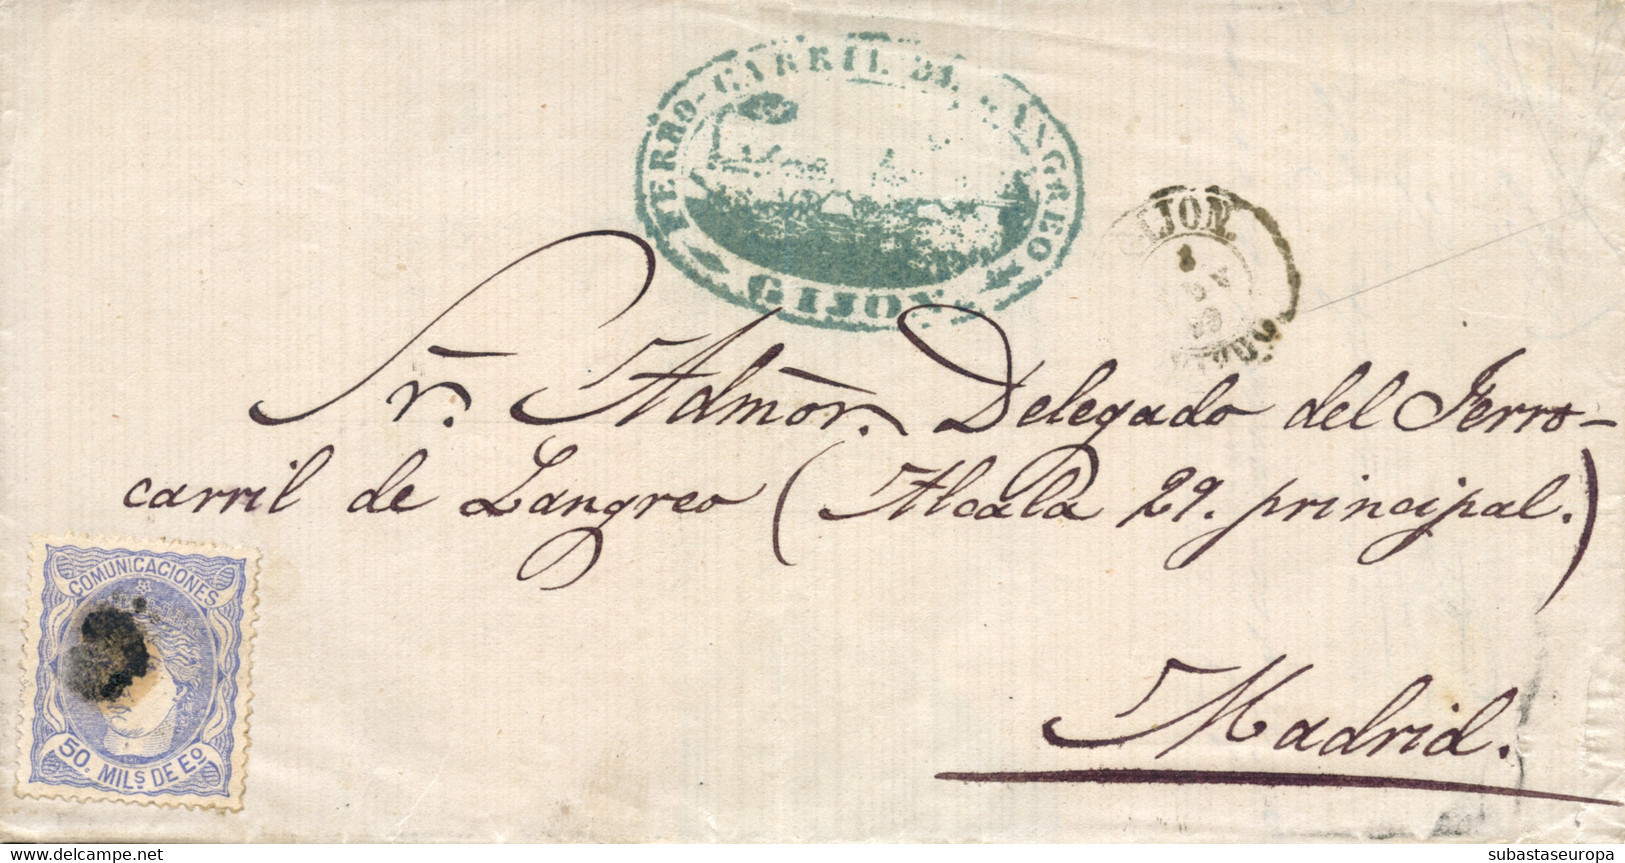 FERRO-CARRIL DE LANGREO
GIJON
GIJON.
Sr. Admor. Delegado del Ferro-
carril de Langreo (Alcala 29. principal.)
Madrid.
COMUNICACIONES
50. MILS DE Eo
subastaseuropa